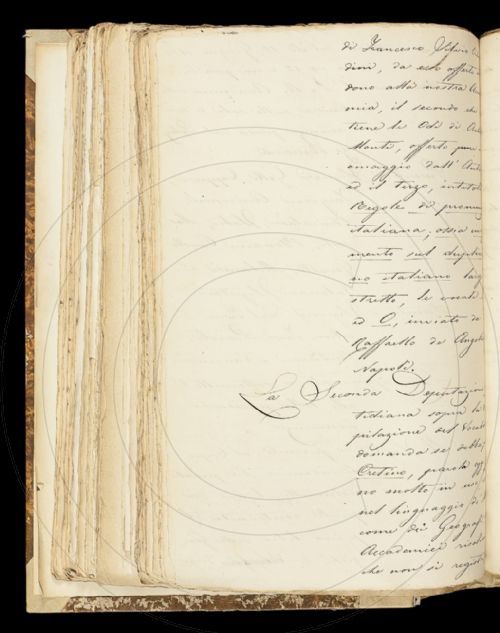 di Francesco
dini, da esso offerto
dono alla nostra
mia, il secondo
tiene le Odi di
Monti, offerto pure
omaggio dall'
ed il terzo, intitol
Regole di pronun
italiana, ossia
mento sul dupli
no italiano larg
stretto, le vocali
ed O, inviato da
Raffaello de Angel
Napoli.
La Seconda Deputazio
tidiana sopra la
pilazione del Vocab
domanda se debba
Cretino, parola
no molto in uso
nel linguaggio
come dei Geograf
Accademici risol
che non si regist